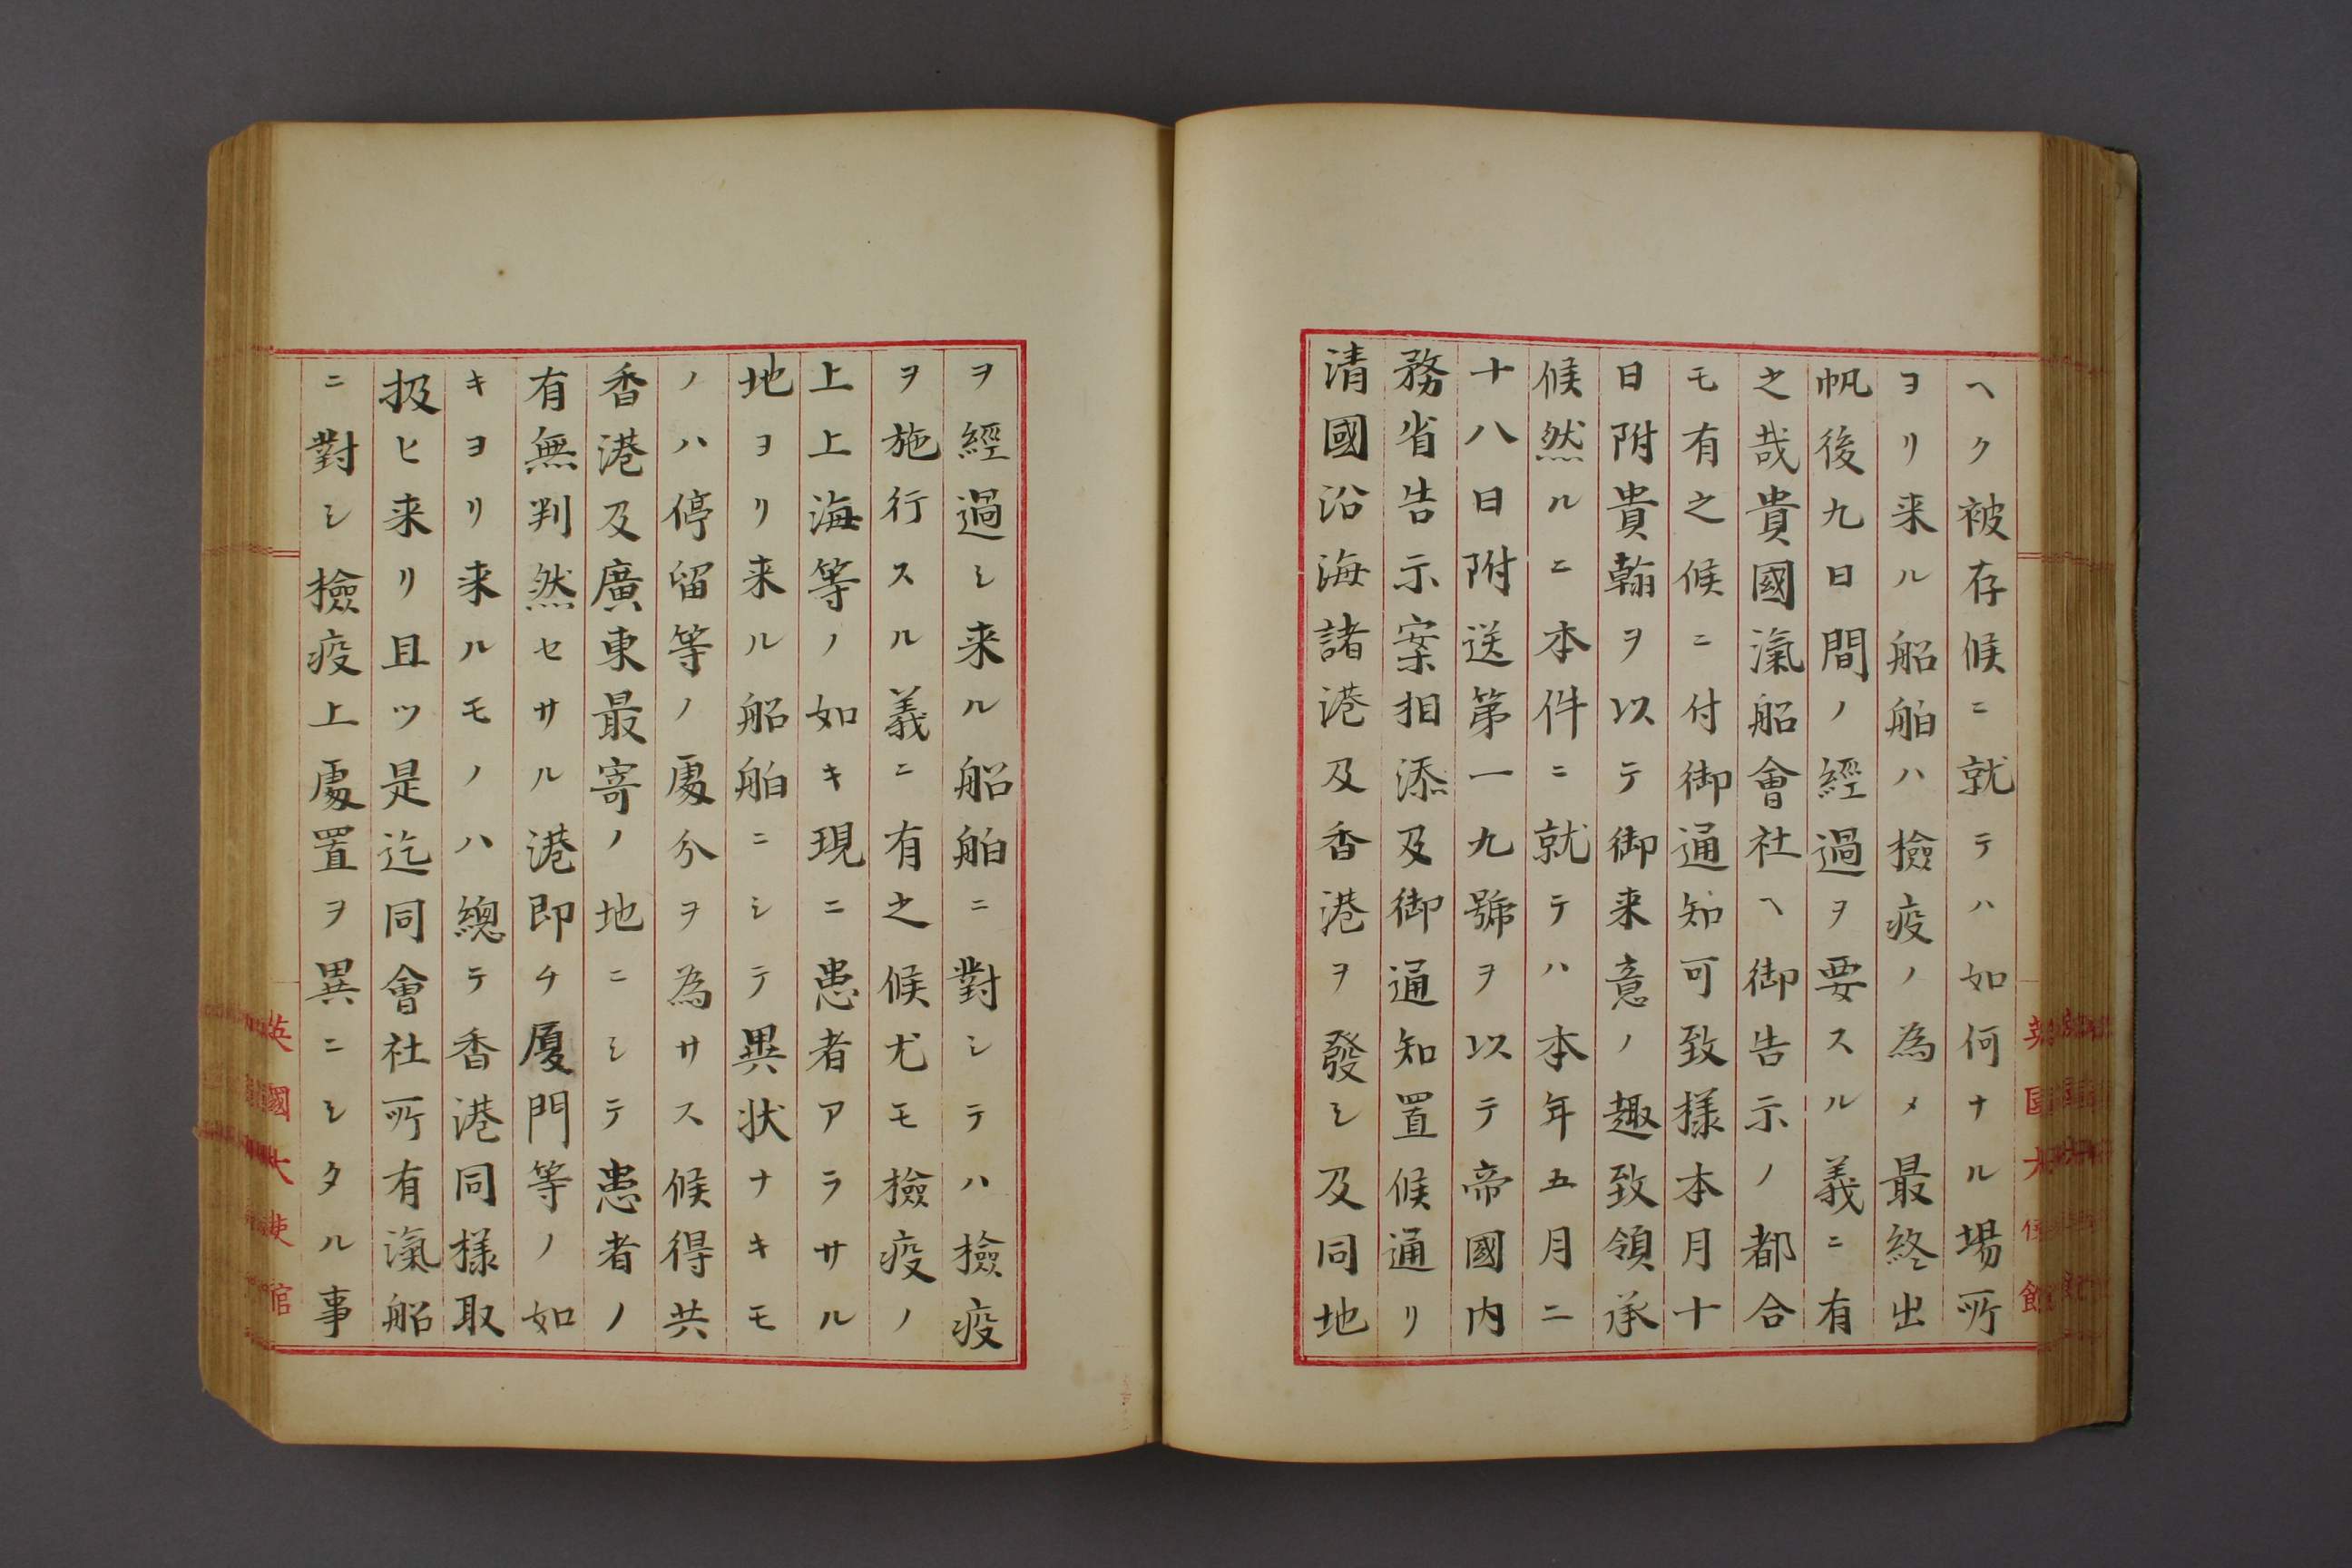 ヘク被存候ニ就テハ如何ナル場所
ヨリ来ル船舶ハ檢疫ノ為メ最終出
帆後九日間ノ經過ヲ要スル義ニ有
之哉貴國滊船會社ヘ御告示ノ都合
モ有之候ニ付御通知可致様本月十
日附貴翰ヲ以テ御来意ノ趣致領承
候然ルニ本件ニ就テハ本年五月二
十八日附送第一九號ヲ以テ帝國内
務省告示案相添及御通知置候通リ
清國沿海諸港及香港ヲ發シ及同地
ヲ經過シ来ル船舶ニ對シテハ檢疫
ヲ施行スル義ニ有之候尤モ檢疫ノ
上上海等ノ如キ現ニ患者アラサル
地ヨリ来ル船舶ニシテ異状ナキモ
ノハ停留等ノ處分ヲ為サス候得共
香港及廣東最寄ノ地ニシテ患者ノ
有無判然セサル港即チ厦門等ノ如
キヨリ来ルモノハ總テ香港同様取
扱ヒ来リ且ツ是迄同會社所有滊船
ニ對シ檢疫上處置ヲ異ニシタル事
英國大使館